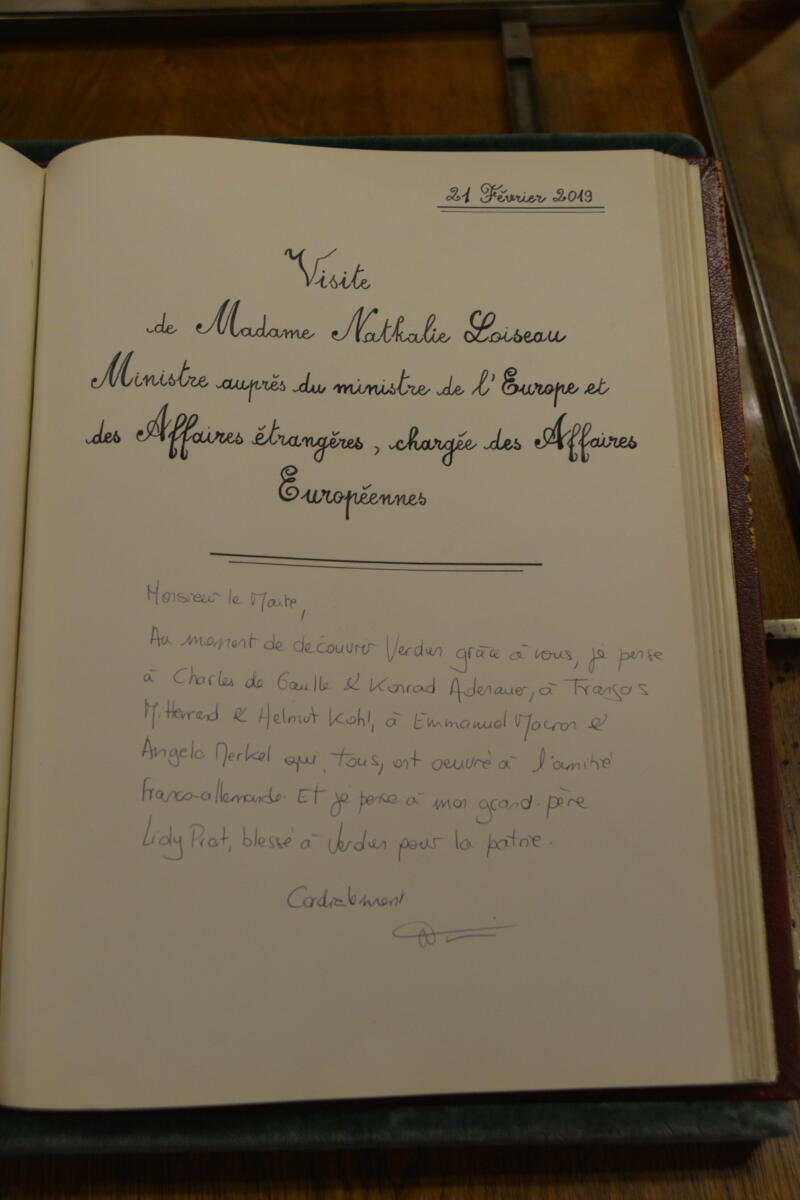 21 Février 2019
Visite
de Madame Nathalie Loiseau
Ministre auprès du ministre de l'Europe et
des Affaires étrangères, chargée des Affaires
Européennes
Monsieur le Maire,
Au moment de découvrir Verdun grâce à vous, je pense
à Charles de Gaulle & Konrad Adenauer, à François
Mitterrand & Helmut Kohl, à Emmanuel Macron &
Angela Merkel qui, tous, ont oeuvré à l'amitié
franco-allemande. Et je pense à mon grand-père
Lidy Prat, blessé à Verdun pour la patrie.
Cordialement